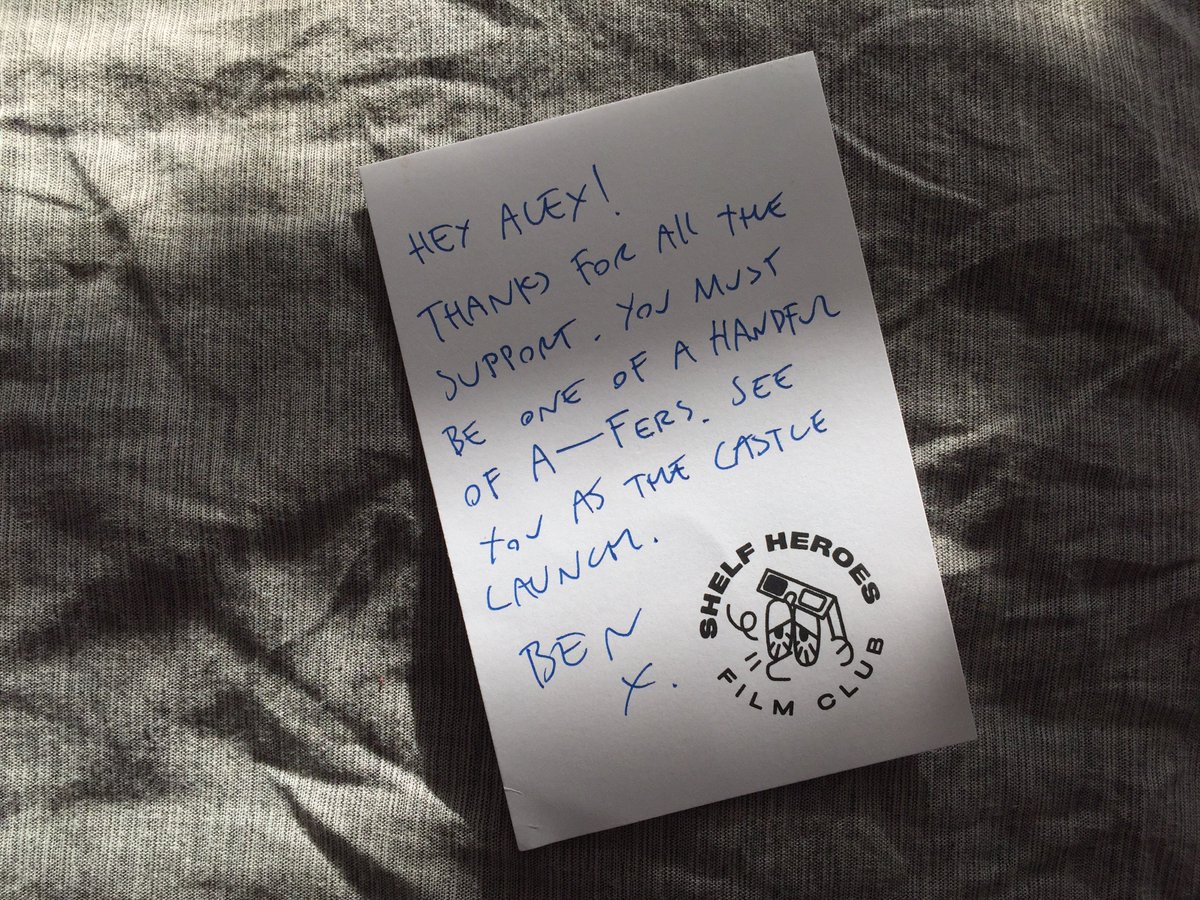 HEY ALEX!
THANKS FOR All THE
SUPPORT. YOU MUST
BE ONE OF A HANDFUL
OF A—FERS. SEE
YOU AS THE CASTLE
LAUNCH.
BEN
X.
SHELF HEROES
FILM CLUB